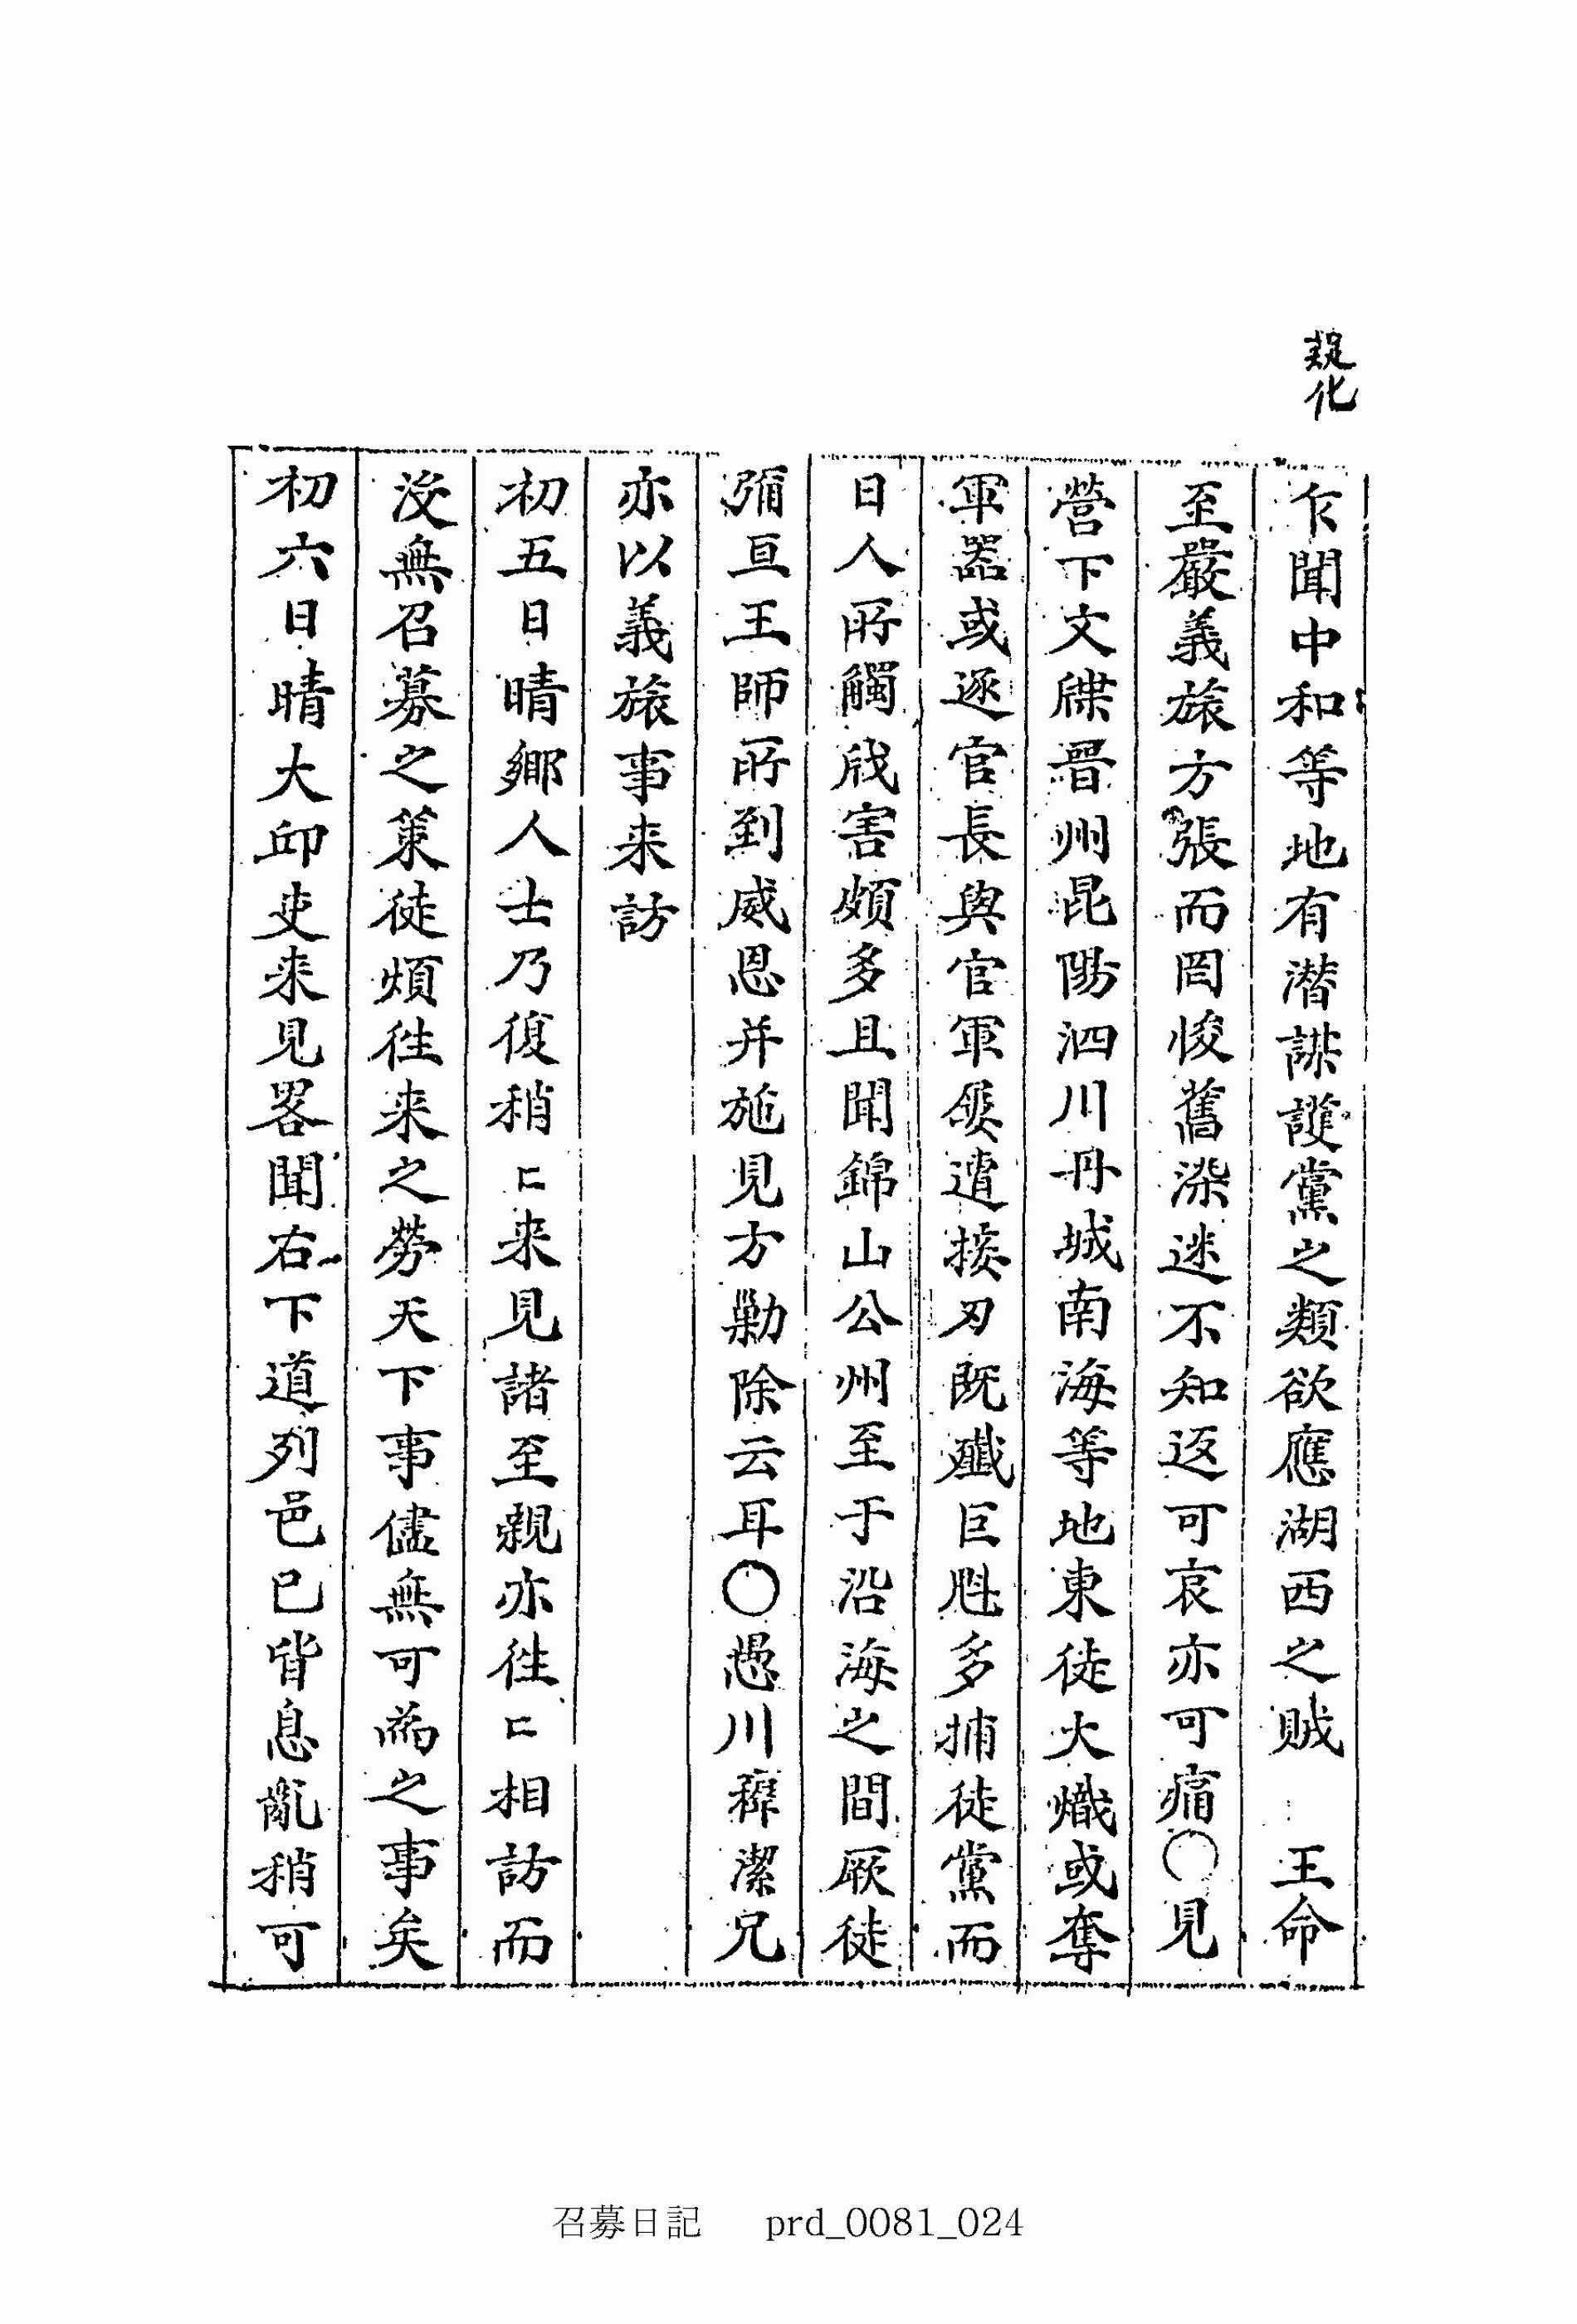 化
乍聞中和等地有潛誅護黨之類欲應湖西之賊 王命
至嚴義旅方張而罔悛舊染迷不知返可哀亦可痛〇見
營下文牒晋州昆陽泗川丹城南海等地東徒大熾或奪
軍器或逐官長與官軍屡遭接刃既殲巨魁多捕徒黨而
日人所觸戕害頗多且聞錦山公州至于沿海之間厥徒
彌亘王師所到威恩并施見方勦除云耳〇愚川穉潔兄
亦以義旅事来訪
初五日晴鄉人士乃復稍〻来見諸至親亦往〻相訪而
沒無召募之策徒煩往来之勞天下事儘無可為之事矣
初六日晴大邱吏来見畧聞右下道列邑已皆息亂稍可
召募日記 prd_0081_024